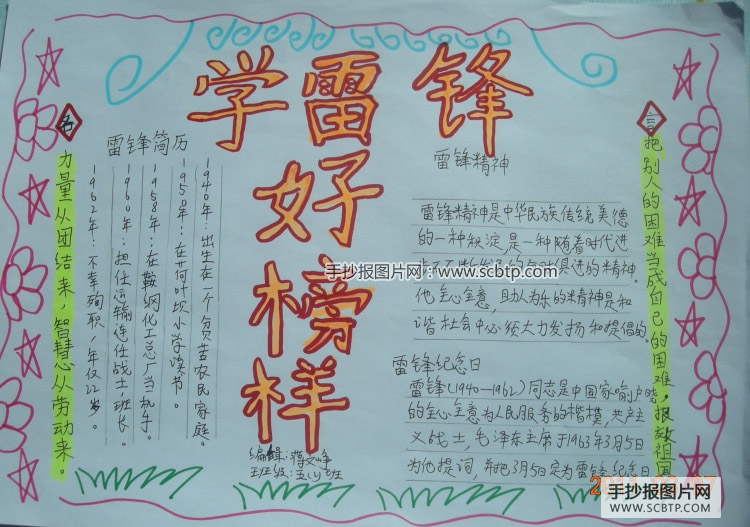 学雷锋
好榜样
名
力量从团结来，智慧从劳动来。
雷锋简历
1940年：出生在一个贫苦农民家庭。
1950年：在荷叶坝小学读书。
1958年：在鞍钢化工总厂当机手。
1960年：担任运输连任战士，班长。
1962年：不幸殉职，年仅22岁。
雷锋精神
雷锋精神是中华民族传统美德
的一种积淀，是一种随着时代进
俱进的精神．
他全心全意，自助人为乐的精神是和
谐社会中心须大力发扬和提倡的．
手抄报图片网：www.scbtp.com
雷锋纪念日
雷锋（1940—1962）同志是中国家喻户晓
的全心全意为人民服务的楷模，共产主
义战士，毛泽东主席于1963年3月5日
为他提词，并把3月5日定为雷锋纪念日
言
把别人的困难当成自己的困难。报效祖国
编辑：蒋文峥
班级：五（1）班
手抄报图片网
WWW.SCBTP.COM